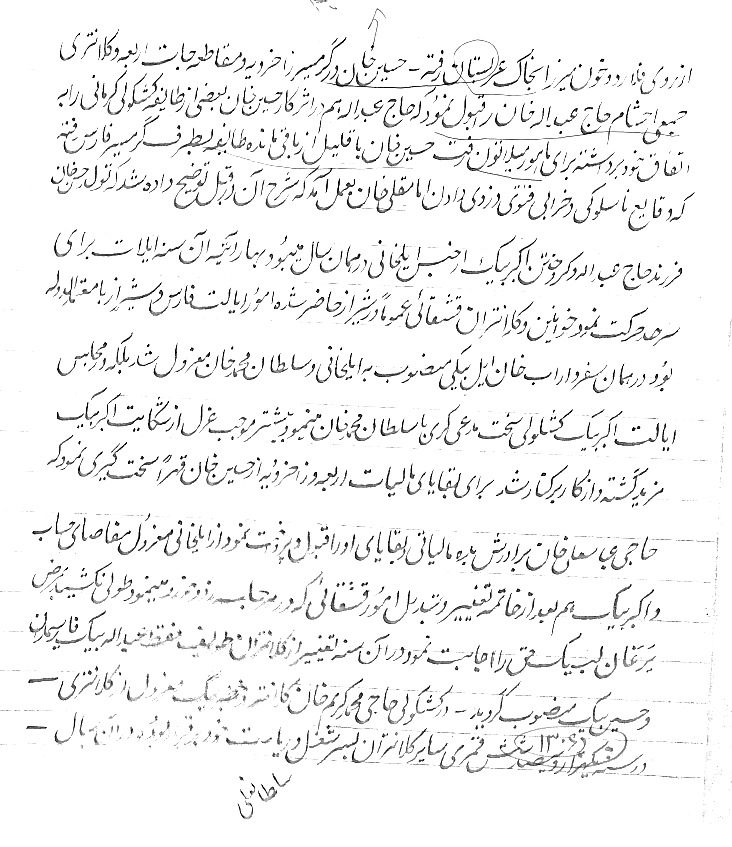 از روی فلارد و خون میرزا بخاک عربستان رفته - حسین خان در گرمسیر زاخرویه و مقاطعه جات اربعه و کلانتری
جمعی احشام حاج عبداله خان را قبول نمود که حاج عبداله هم در اثر کار حسین خان بعضی از طایفه کشکولی کرمانی را به
اتفاق خود برداشته برای ماهور میلاتون رفت حسین خان با قلیل از باقی مانده طایفه بطرف گرمسیر فارس رفته
که وقایع ناسلوکی و خرابی فتوی و زدی دادن امامقلی خان بعمل آمد که شرح آن در قبل توضیح داده شد که تولد حسن خان
فرزند حاج عبداله و کر اکبر بیک از حبس ایلخانی در همان سال میبود بهار آتیه آن سنه ایلات برای
سرحد حرکت نمود خوانین و کلانتران قشقائی عموماً در شیراز حاضر شده امور ایالت فارس در شیراز با معتمدالدوله
بود در همان سفر داراب خان ایل بیگی منصوب به ایلخانی و سلطان محمد خان معزول شد بلکه در مجالس
ایالت اکبر بیک کشکولی سخت مدعی گری با سلطان محمد خان مینمود بیشتر موجب عزل از شکایت اکبر بیک
مزید گشته و از کار برکنار شد برای بقایای مالیات اربعه و زاخرویه از حسین خان قهراً سخت گیری نمود که
حاجی خان برادرش بده مالیاتی و بقایای او را قبول و پرداخت نمود از ایلخانی معزول مفاصای حساب
و اکبر بیک هم بعد از خاتمه تغییر و تبدیل امور قشقائی که در میشد طولی نکشید بمرض
یرقان لبیک حق را اجابت نمود در آن سنه تغییر از کلانتران طوایف فقط عبداله بیک فارسیمدان
و حسین بیک منصوب گردید - در کشکولی حاجی محمد کریم خان کلانتر و بیک معزول از کلانتری -
در سنه یکهزار و سیصد و شش ۱۳۰۶ قمری سایر کلانتران بسر شغل و ریاست خود برقرار بوده در آن سال -
سلطانعلی